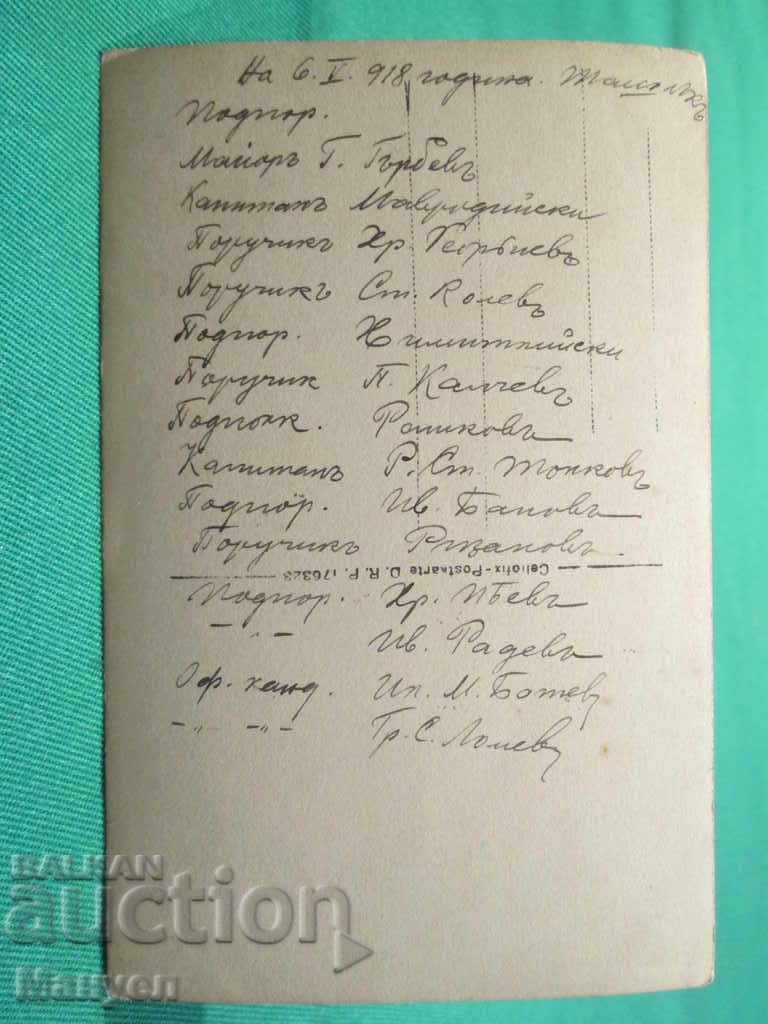 На 6. V. 918 година.
Подпор.
Майоръ Г. Гърбевъ
Капитанъ Мавродийски
Поручикъ Хр. Георгиевъ
Поручикъ Ст. Колевъ
Подпор.
Поручик П. Калчевъ
Раликовъ
Капитанъ Р. Ст. Тонковъ
Подпор. Ив. Бановъ
Поручикъ
Celiofix-Postkarte D. R. P. 176323
Подпор. Хр. Пѣевъ
—„— Ив. Радевъ
Оф. канд. Ил. М. Ботев
—„— —„— Гр. С. Лолев
BALKAN
auction
Manyen